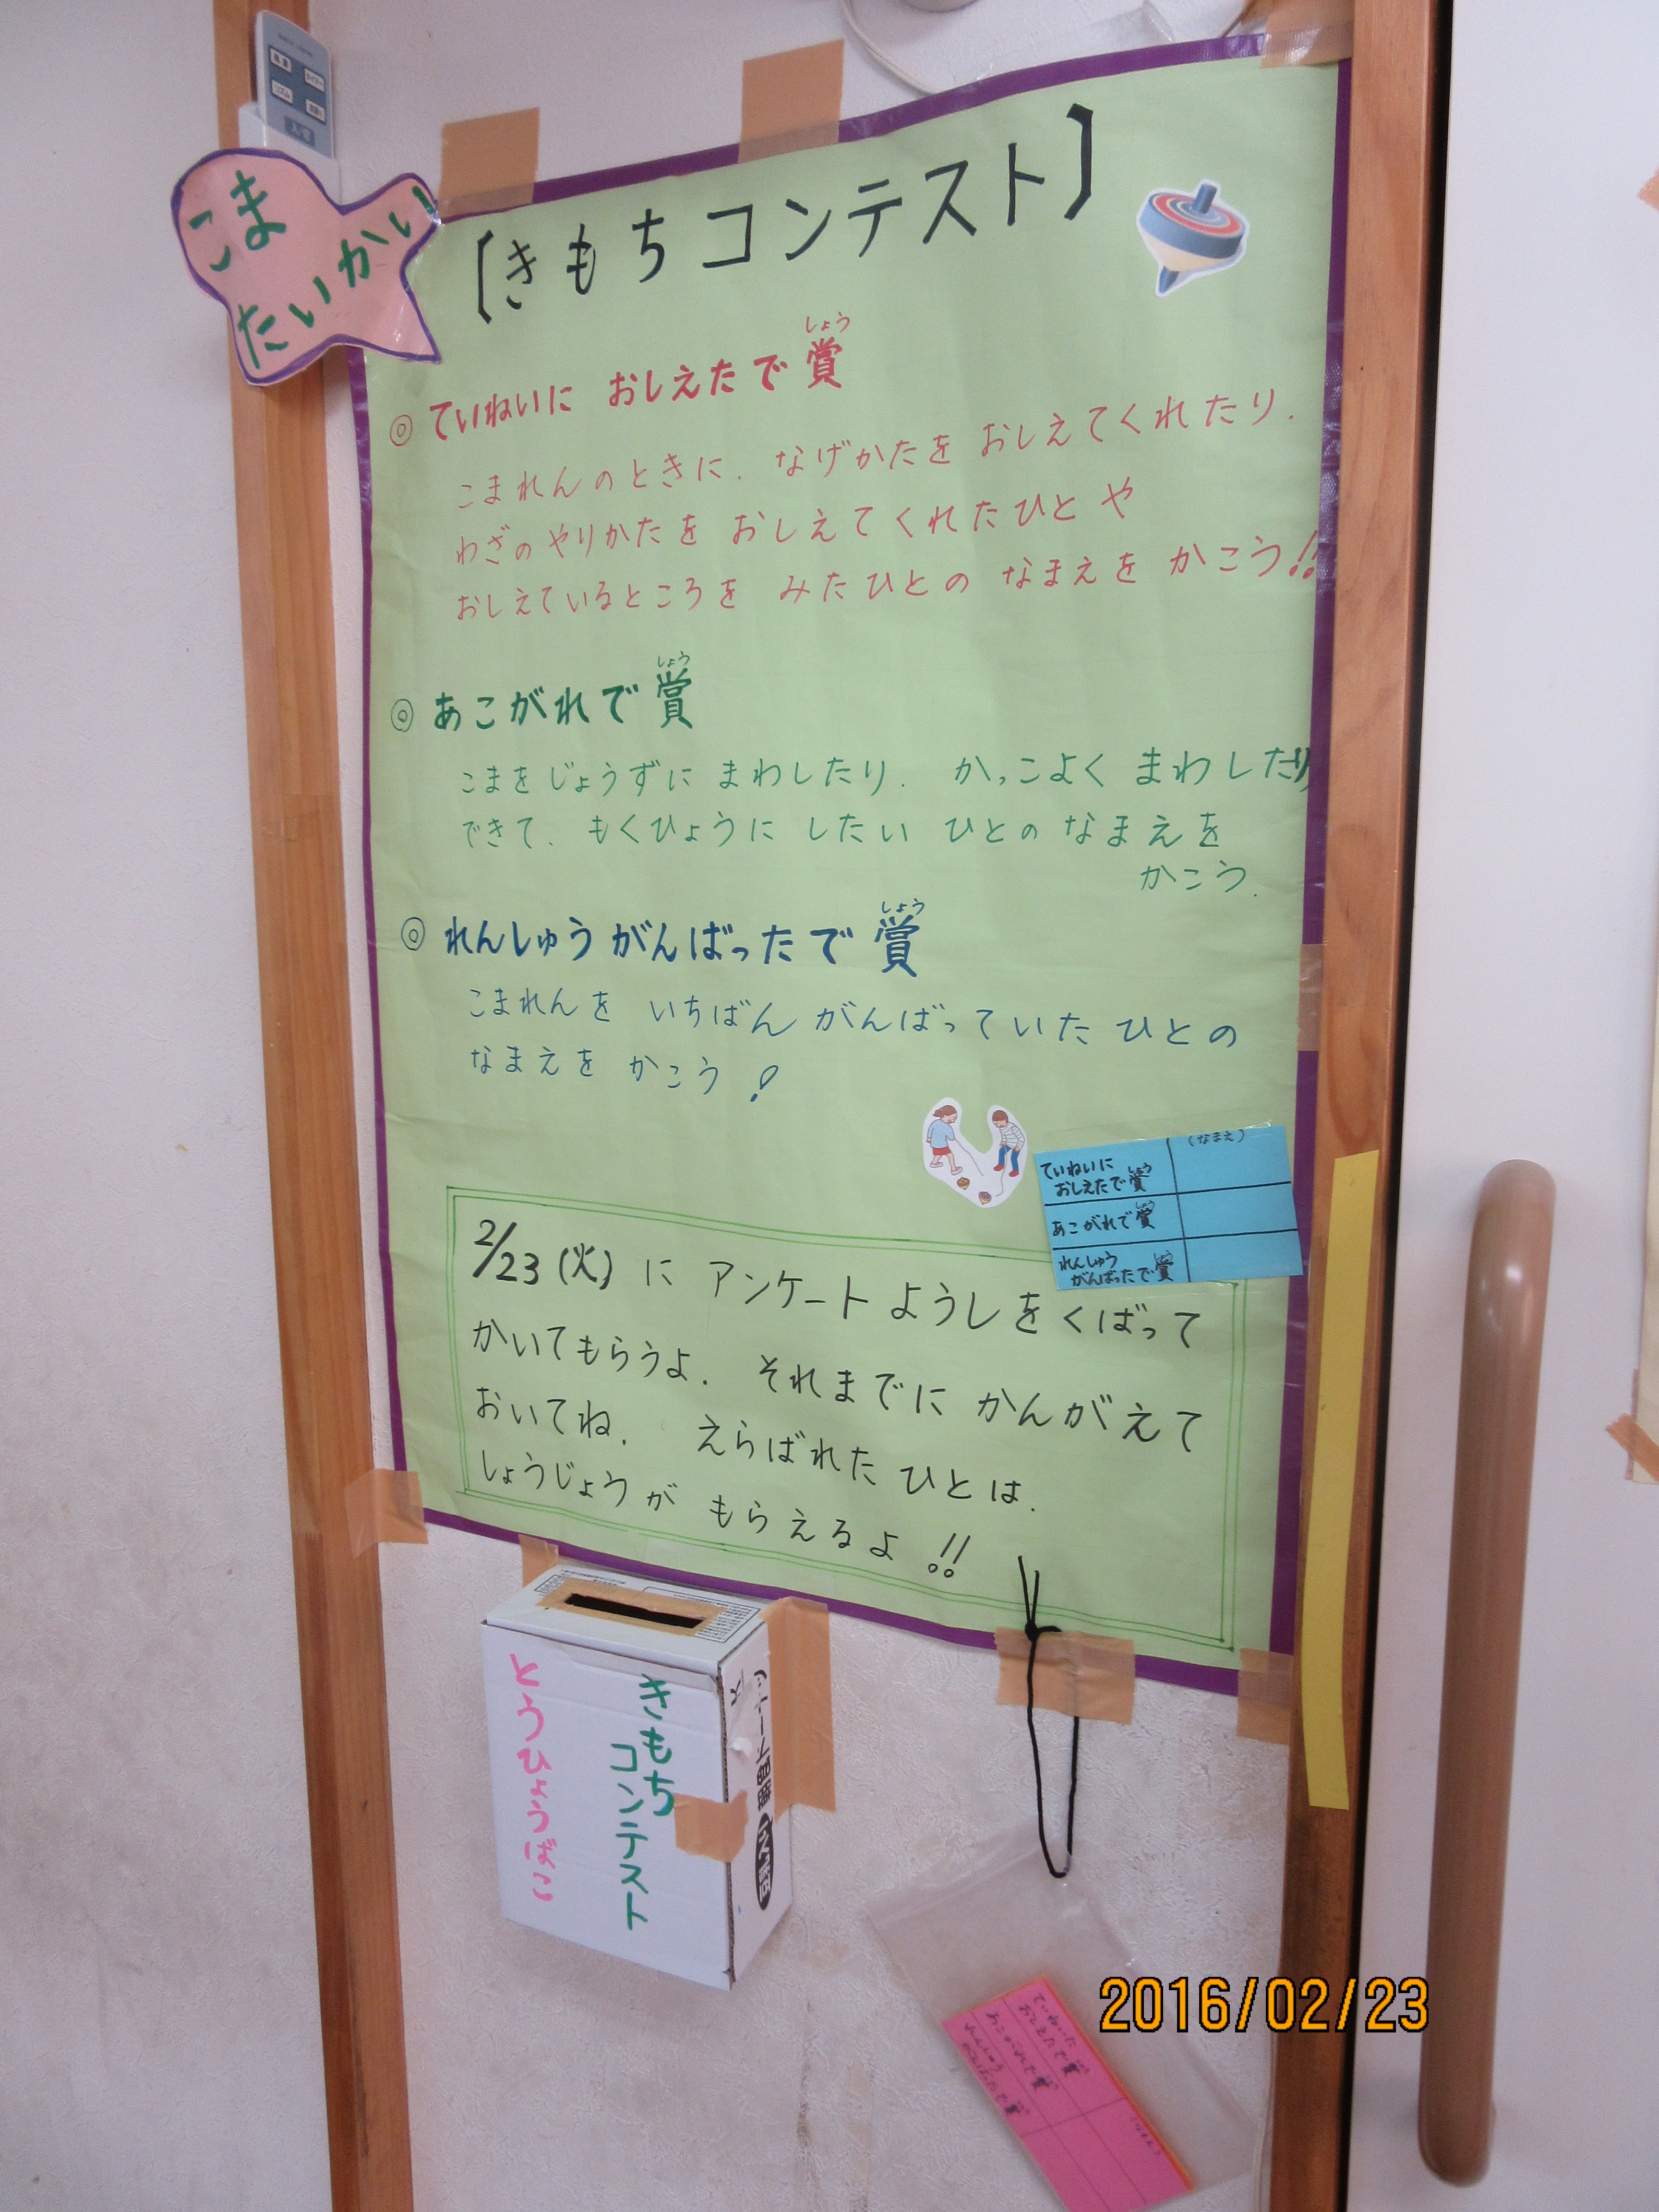 こま
たいかい
【きもちコンテスト】
◎ ていねいに おしえたで賞
しょう
こまれんのときに、なげかたを おしえてくれたり、
わざのやりかたを おしえてくれたひとや
おしえているところを みたひとの なまえを かこう!!
◎ あこがれで賞
しょう
こまをじょうずに まわしたり、かっこよく まわしたり
できて、もくひょうに したい ひとの なまえを
かこう。
◎ れんしゅうがんばったで賞
しょう
こまれんを いちばん がんばっていた ひとの
なまえを かこう!
(なまえ)
ていねいに
おしえたで賞
しょう
あこがれで賞
しょう
れんしゅう
がんばったで賞
しょう
2/23(火)に アンケートようしをくばって
かいてもらうよ。それまでに かんがえて
おいてね。えらばれた ひとは、
しょうじょうが もらえるよ!!
きもち
コンテスト
とうひょうばこ
ていねいに
おしえたで賞
あこがれで賞
れんしゅう
がんばったで賞
(なまえ)
2016/02/23